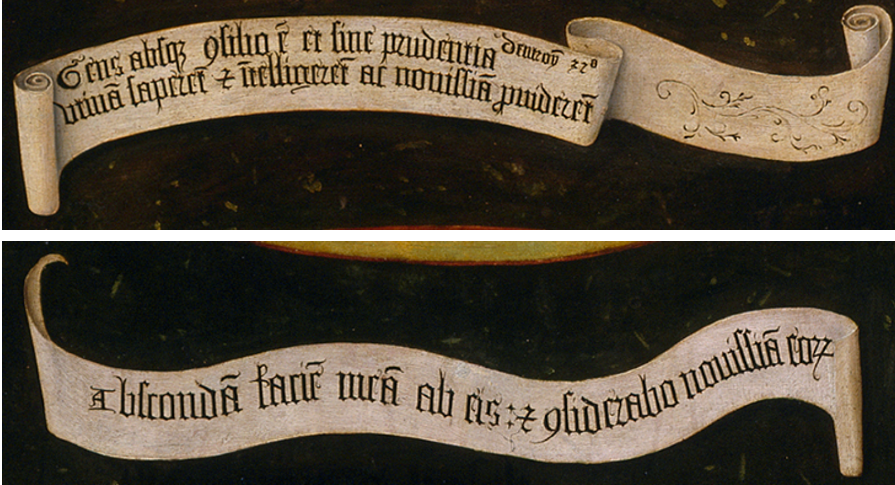 Gens absqꝫ ꝯsilio ē et sine prudentia deutroῡ 32°
utinā saperēt ⁊ ītelligerēt ac novissīa ꝓviderēt
Abscondā faciē meā ab eis : ⁊ ꝯsiderabo novissīa eoꝝ